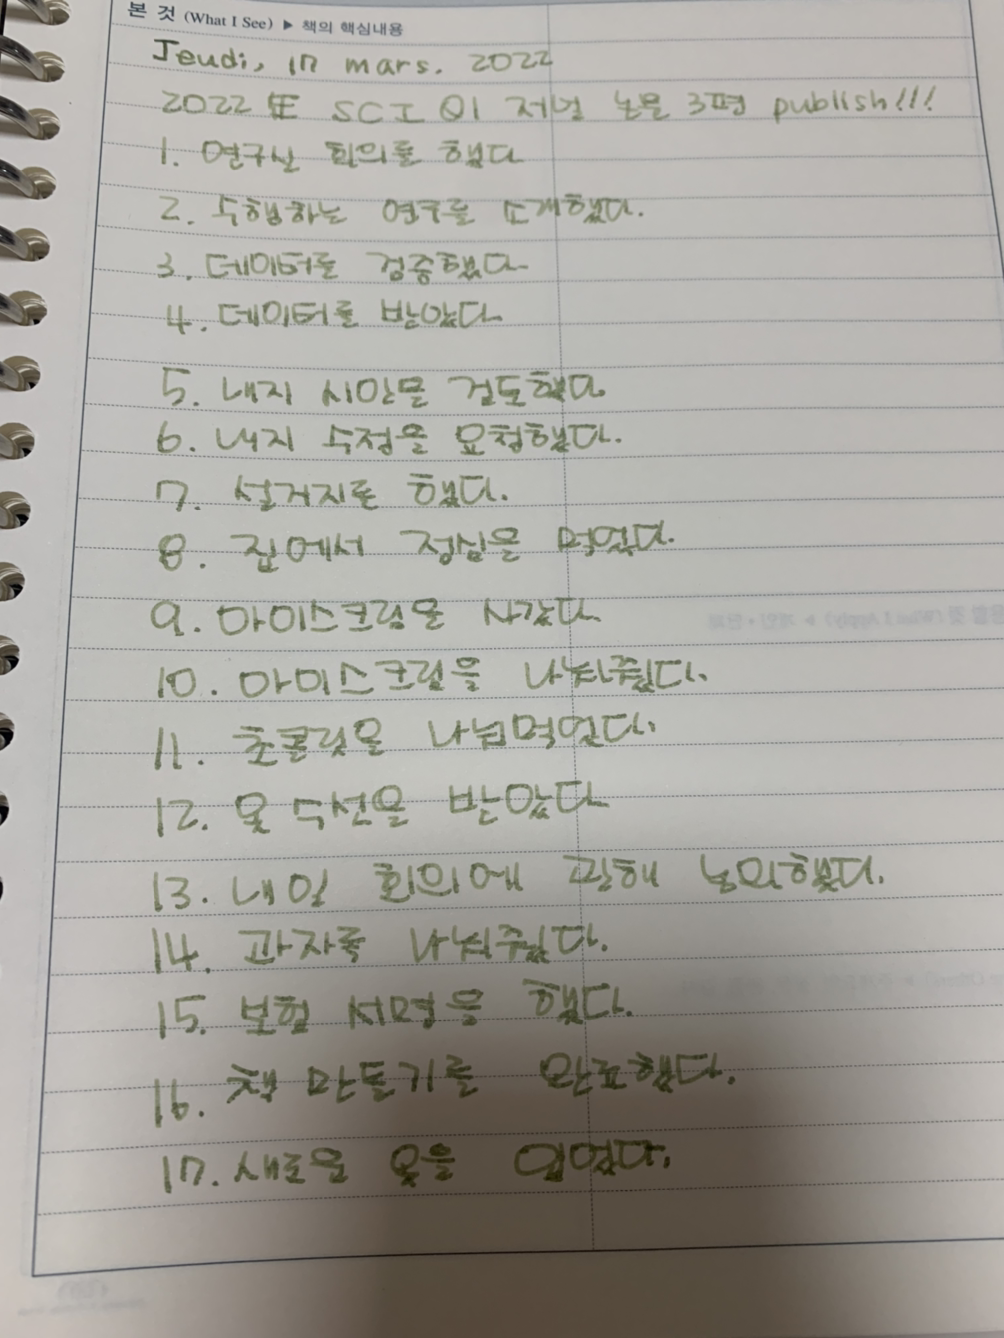 본 것 (What I See) ▶ 책의 핵심내용
Jeudi, 17 mars. 2022
2022년 SCI Q1 저널 논문 3편 publish!!!
1. 연구실 회의를 했다
2. 수행하는 연구를 소개했다.
3. 데이터를 검증했다
4. 데이터를 받았다
5. 내지 시안을 검토했다
6. 내지 수정을 요청했다.
7. 설거지를 했다.
8. 집에서 점심을 먹었다.
9. 아이스크림을 사갔다.
10. 아이스크림을 나눠주웠다.
11. 초콜릿을 나눠먹었다.
12. 옷 수선을 받았다
13. 내일 회의에 관해 논의했다.
14. 과자를 나눠주웠다.
15. 보험 서명을 했다.
16. 책 만들기를 완료했다.
17. 새로운 옷을 입었다.